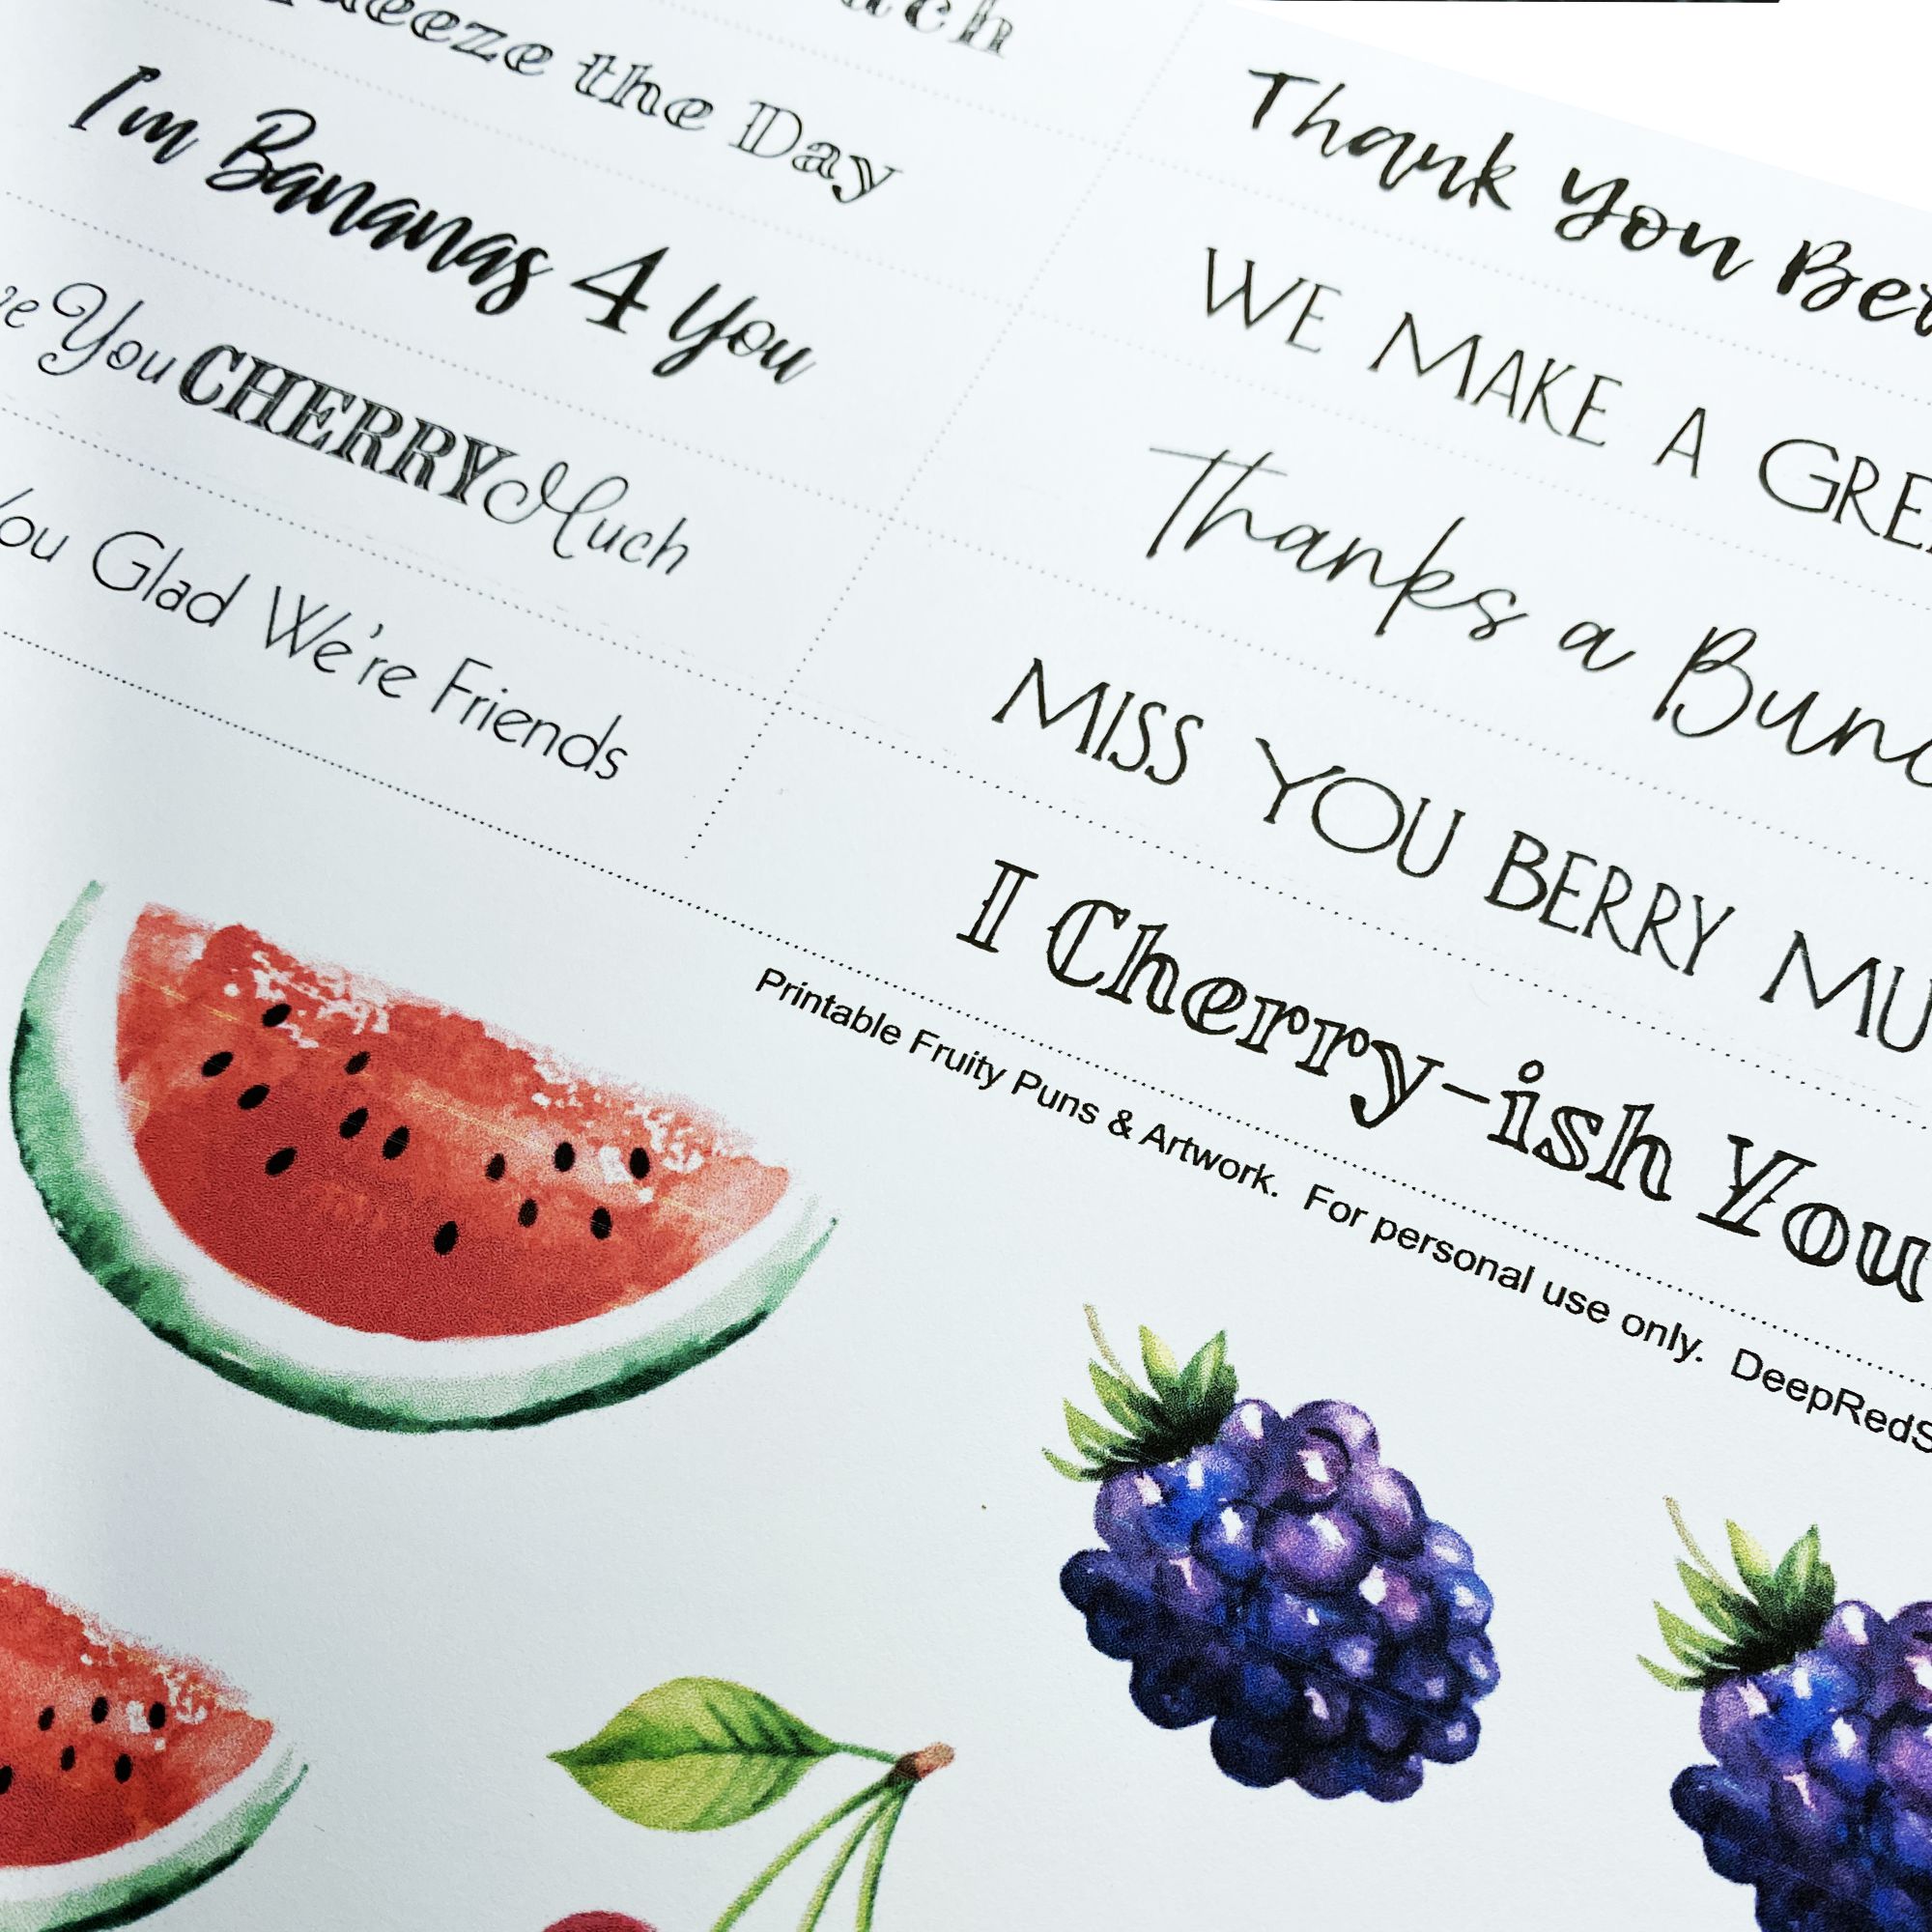 the Day
I'm Bananas 4 You
You CHERRY Much
You Glad We're Friends
Thank You
WE MAKE A
Thanks a
MISS YOU BERRY
I Cherry-ish You
Printable Fruity Puns & Artwork. For personal use only.